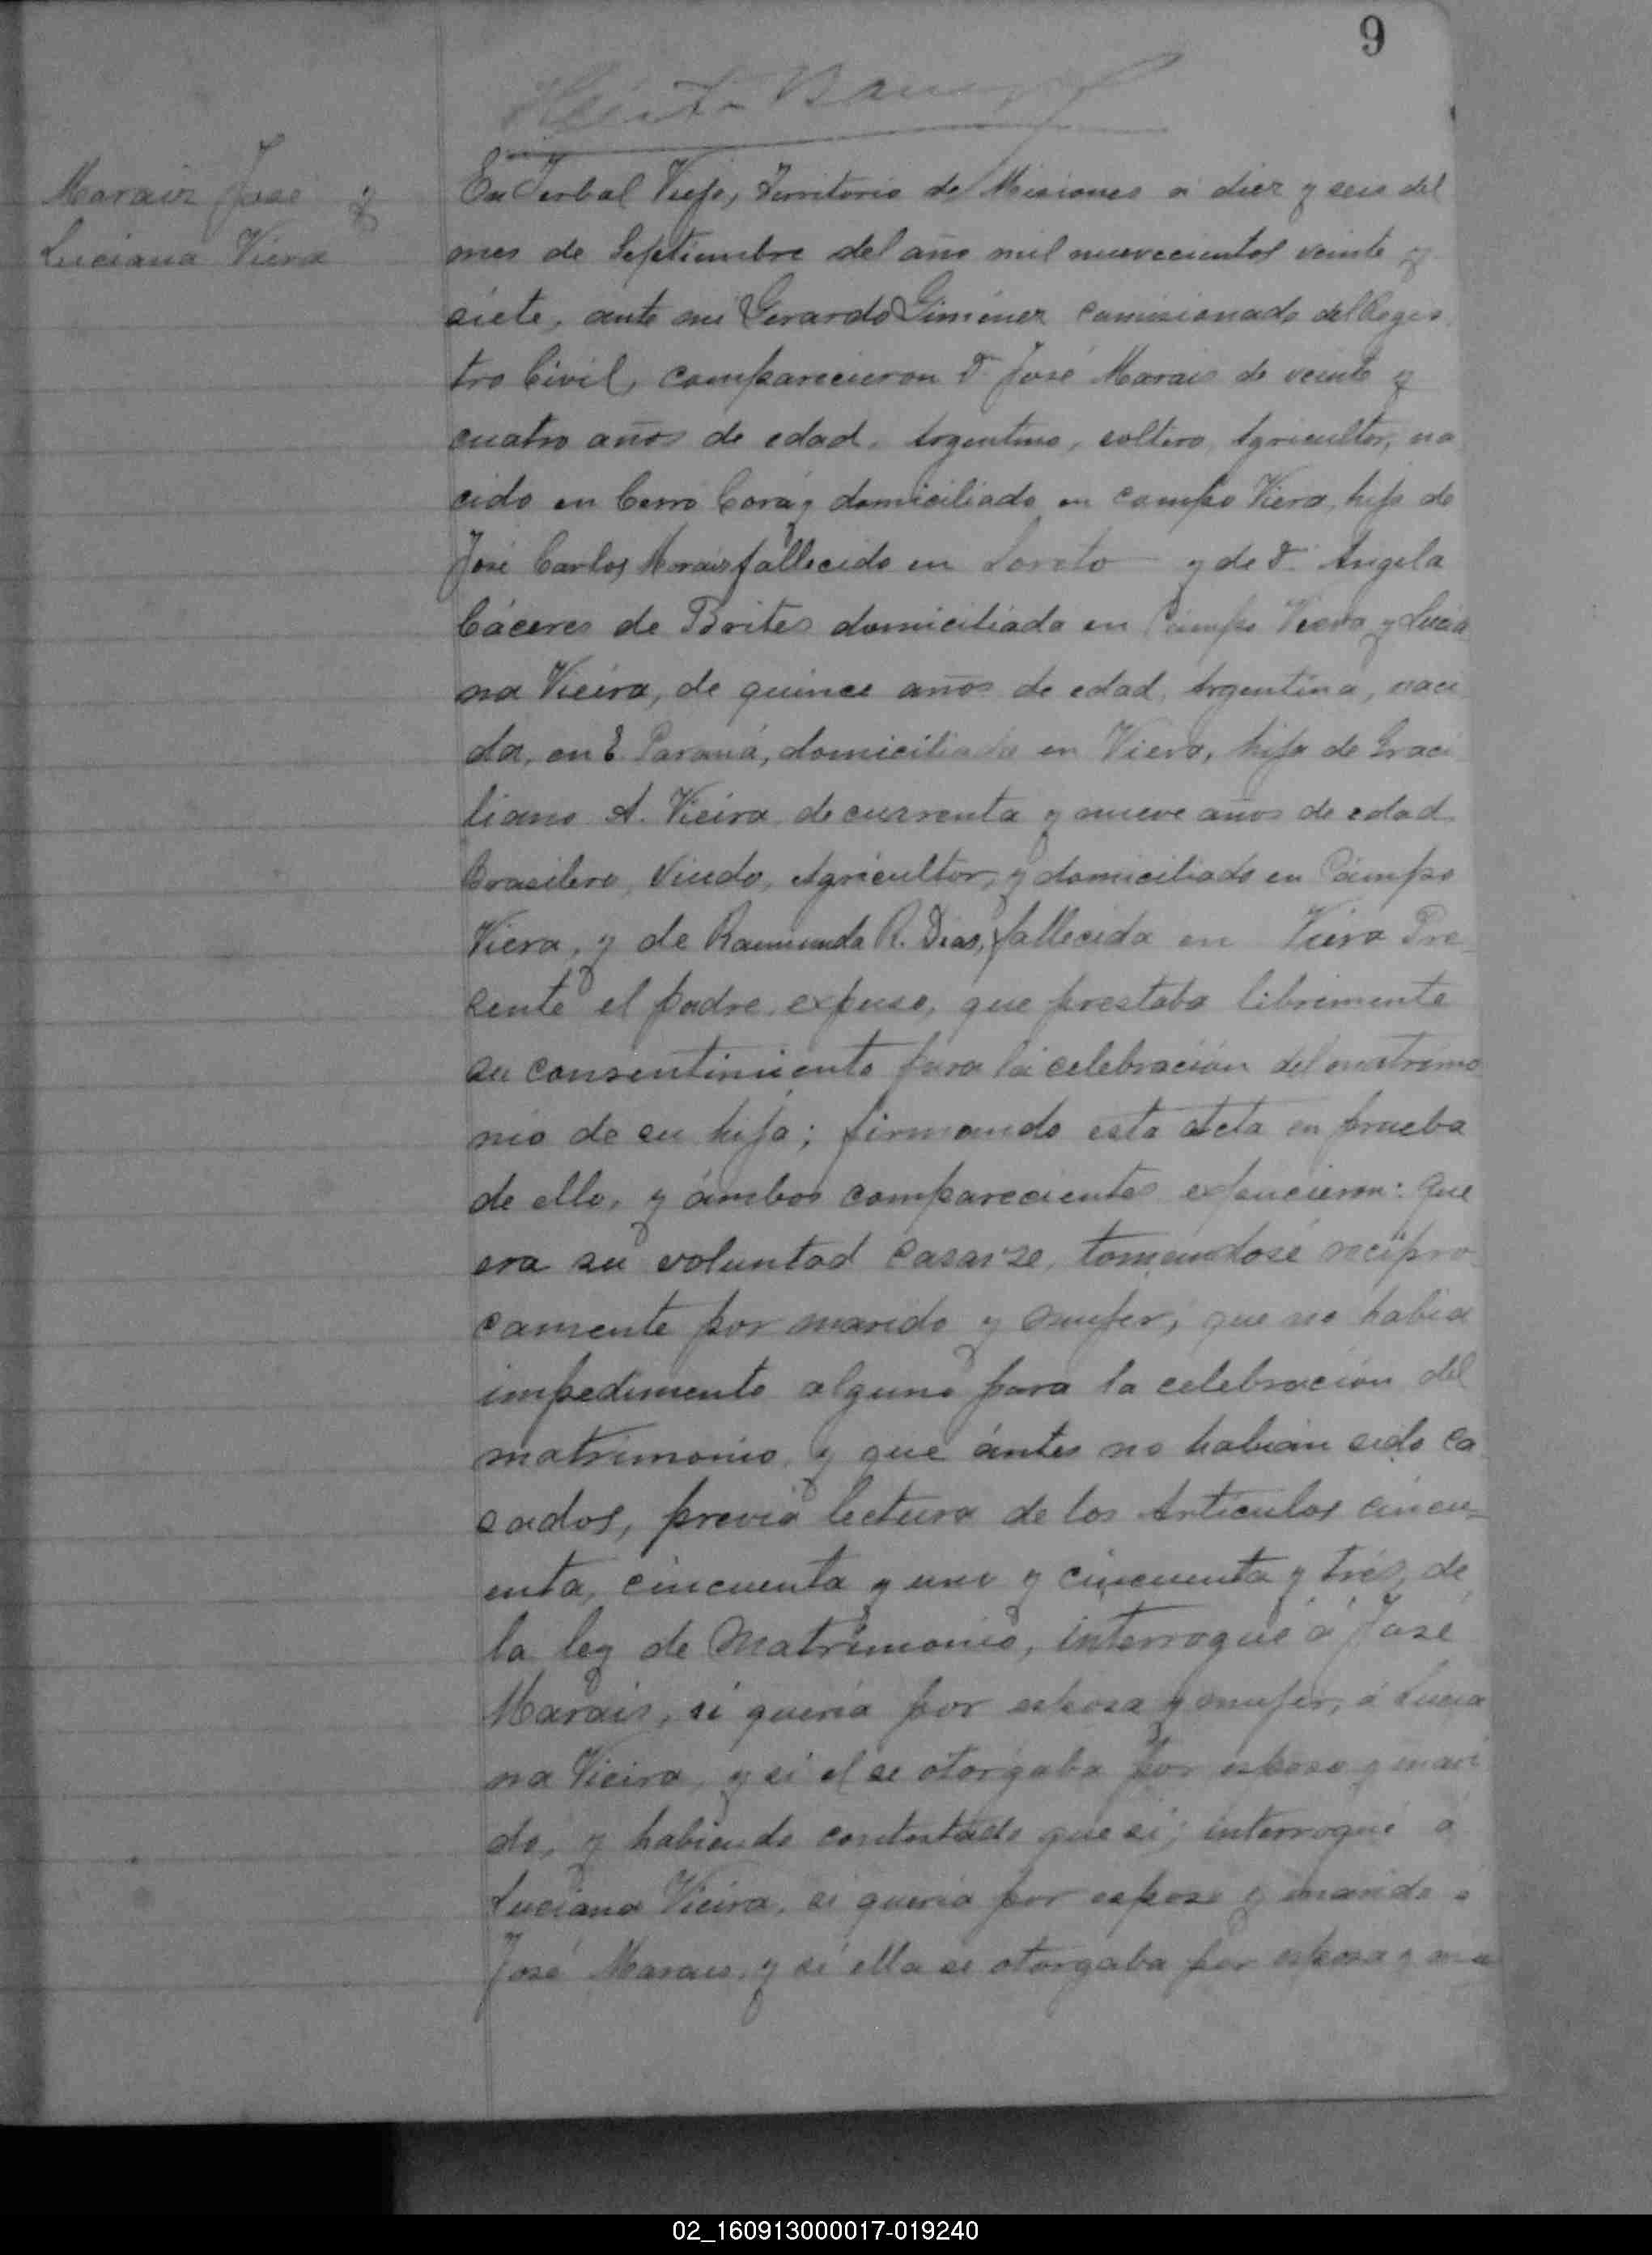 9
Marais José y
Luciana Viera
En Yerbal Viejo, Territorio de Misiones á diez y seis del
mes de Septiembre del año mil nuevecientos veinte y
siete, ante mi Gerardo Giménez Comisionado del Regis
tro Civil, comparecieron Dn José Marais de veinte y
cuatro años de edad, Argentino, soltero, Agricultor, na
cido en Cerro Corá y domiciliado en Campo Viera, hijo de
José Carlos Morais fallecido en Loreto y de Da Angela
Cáceres de Brites domiciliada en Campo Viera y Lucia
na Vieira, de quince años de edad, Argentina, naci
da, en E. Paraná, domiciliada en Viera, hija de Graci
liano A. Vieira de cuarenta y nueve años de edad
Brasilero, Viudo, Agricultor, y domiciliado en Campo
Viera, y de Raimunda R. Dias, fallecida en Viera Pre-
sente el padre expuso, que prestaba libremente
su consentimiento para la celebración del matrimo
nio de su hija; firmando esta acta en prueba
de ello, y ámbos comparecientes expucieron: que
era su voluntad casarse, tomandose recipro
camente por marido y mujer, que no habia
impedimento alguno para la celebración del
matrimonio, y que ántes no habian sido ca
sados, previa lectura de los Artículos cincu=
enta, cincuenta y uno y cincuenta y tres de
la ley de Matrimonio, interrogué á José
Marais, si quería por esposa y mujer, á Lucia
na Vieira, y si el se otorgaba por esposo y mari
do, y habiendo contestado que si; interrogué á
Luciana Vieira, si quería por esposo y marido á
José Marais, y si ella se otorgaba por esposa y mu
02_160913000017-019240